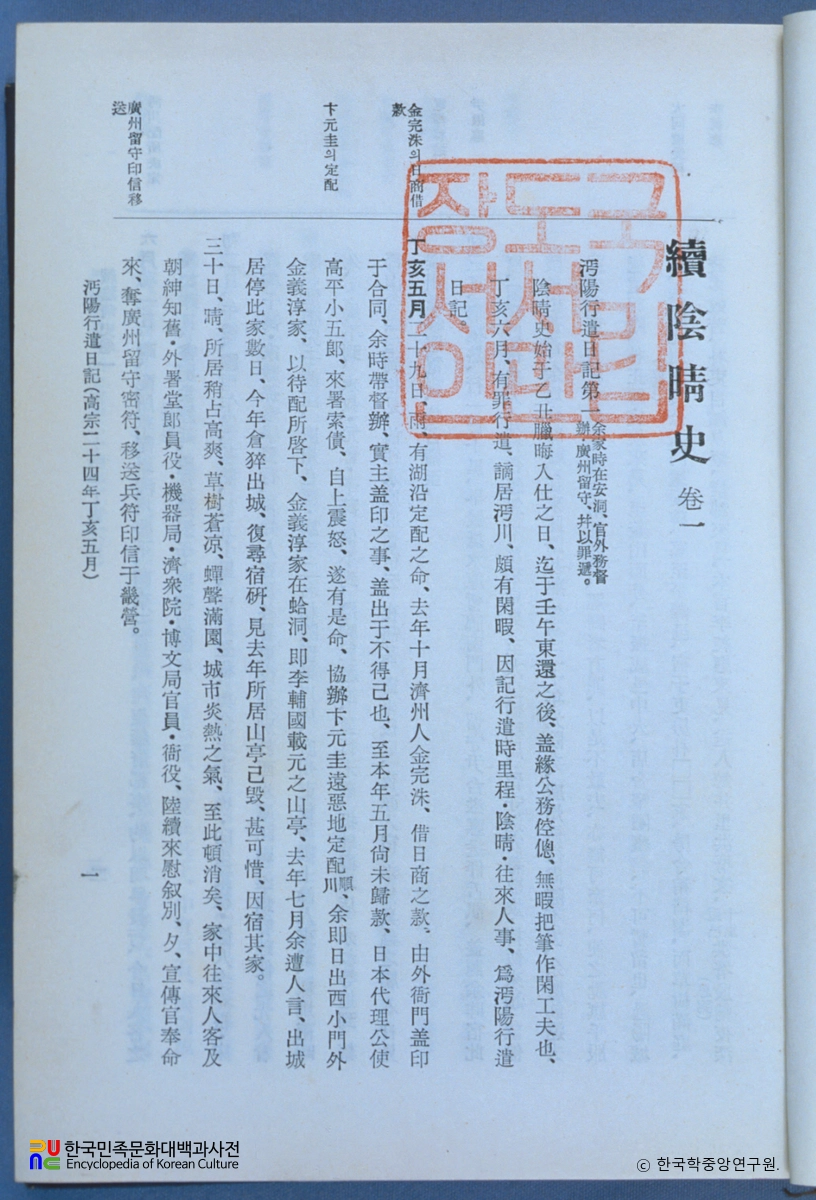 續陰晴史 卷一
沔陽行遣日記第一 余家時在安洞、官外務督
辦・廣州留守、幷以罪遞。
陰晴史始于乙丑臘晦入仕之日、迄于壬午東還之後、盖緣公務倥傯、無暇把筆作閑工夫也、
丁亥六月、有罪行遣、謫居沔川、頗有閑暇、因記行遣時里程・陰晴・往來人事、爲沔陽行遣
日記
金完洙의日商借
款
丁亥五月二十九日、雨、有湖沿定配之命、去年十月濟州人金完洙、借日商之款、由外衙門盖印
于合同、余時帶督辦、實主盖印之事、盖出于不得已也、至本年五月尙未歸款、日本代理公使
卞元圭의定配
高平小五郞、來署索債、自上震怒、遂有是命、協辦卞元圭遠惡地定配順川、余即日出西小門外
金義淳家、以待配所啓下、金義淳家在蛤洞、即李輔國載元之山亭、去年七月余遭人言、出城
居停此家數日、今年倉猝出城、復尋宿硏、見去年所居山亭已毁、甚可惜、因宿其家。
三十日、晴、所居稍占高爽、草樹蒼凉、蟬聲滿園、城市炎熱之氣、至此頓消矣、家中往來人客及
朝紳知舊・外署堂郞員役・機器局・濟衆院・博文局官員・衙役、陸續來慰叙別、夕、宣傳官奉命
廣州留守印信移
送
來、奪廣州留守密符、移送兵符印信于畿營。
沔陽行遣日記(高宗二十四年丁亥五月)
一
장도국
서서립
인관
한국민족문화대백과사전
Encyclopedia of Korean Culture
© 한국학중앙연구원.